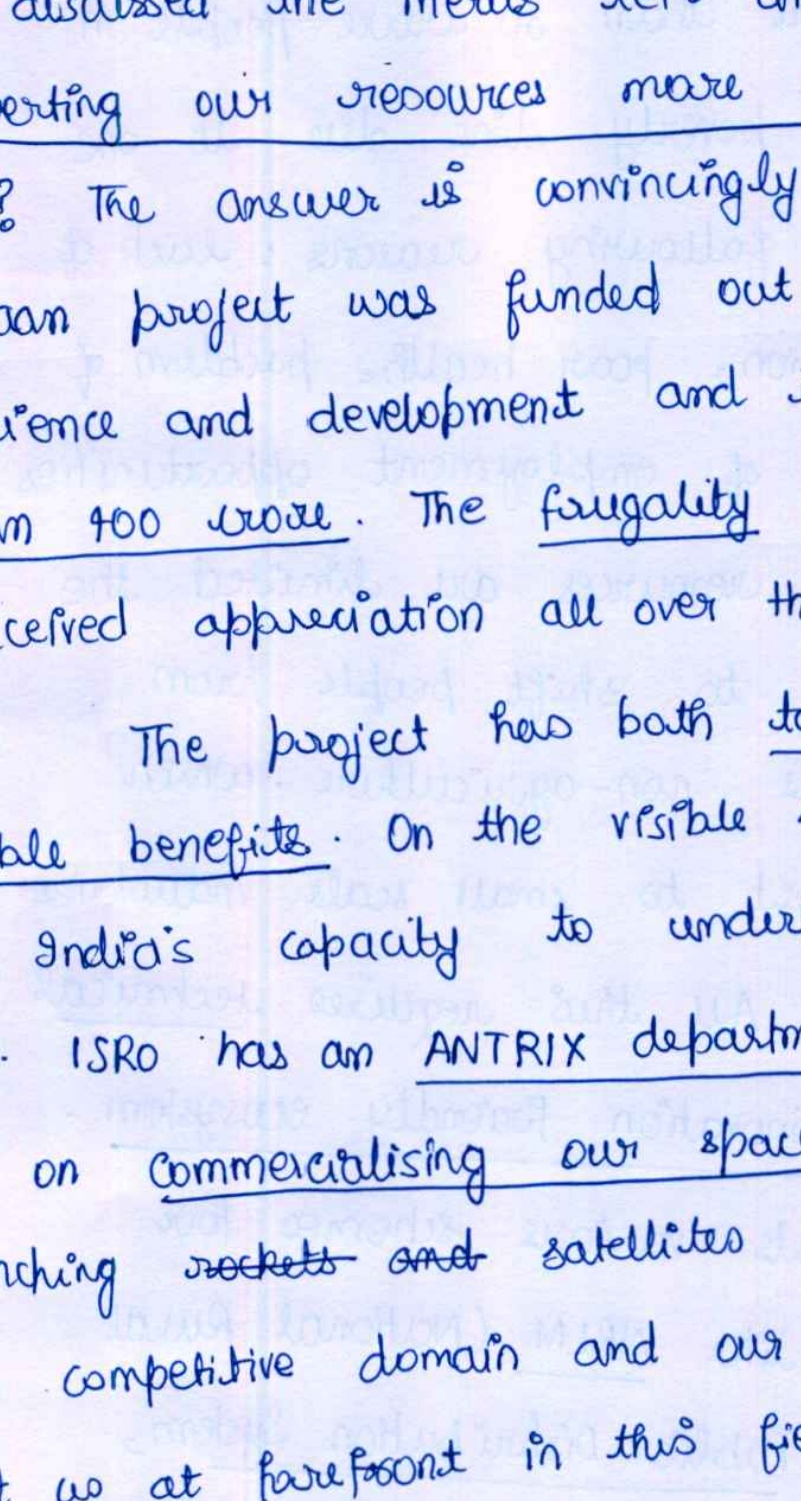 discussed the
erting our resources more
? The answer is convincingly
aan project was funded out
ience and development and
n 400 crore. The frugality
ceived appreciation all over th
The project has both ta
ble benefits. On the visible
India's capacity to under
. ISRO has an ANTRIX departm
on commercialising our spac
nching rockets and satellites
competitive domain and our
t us at forefront in this fie